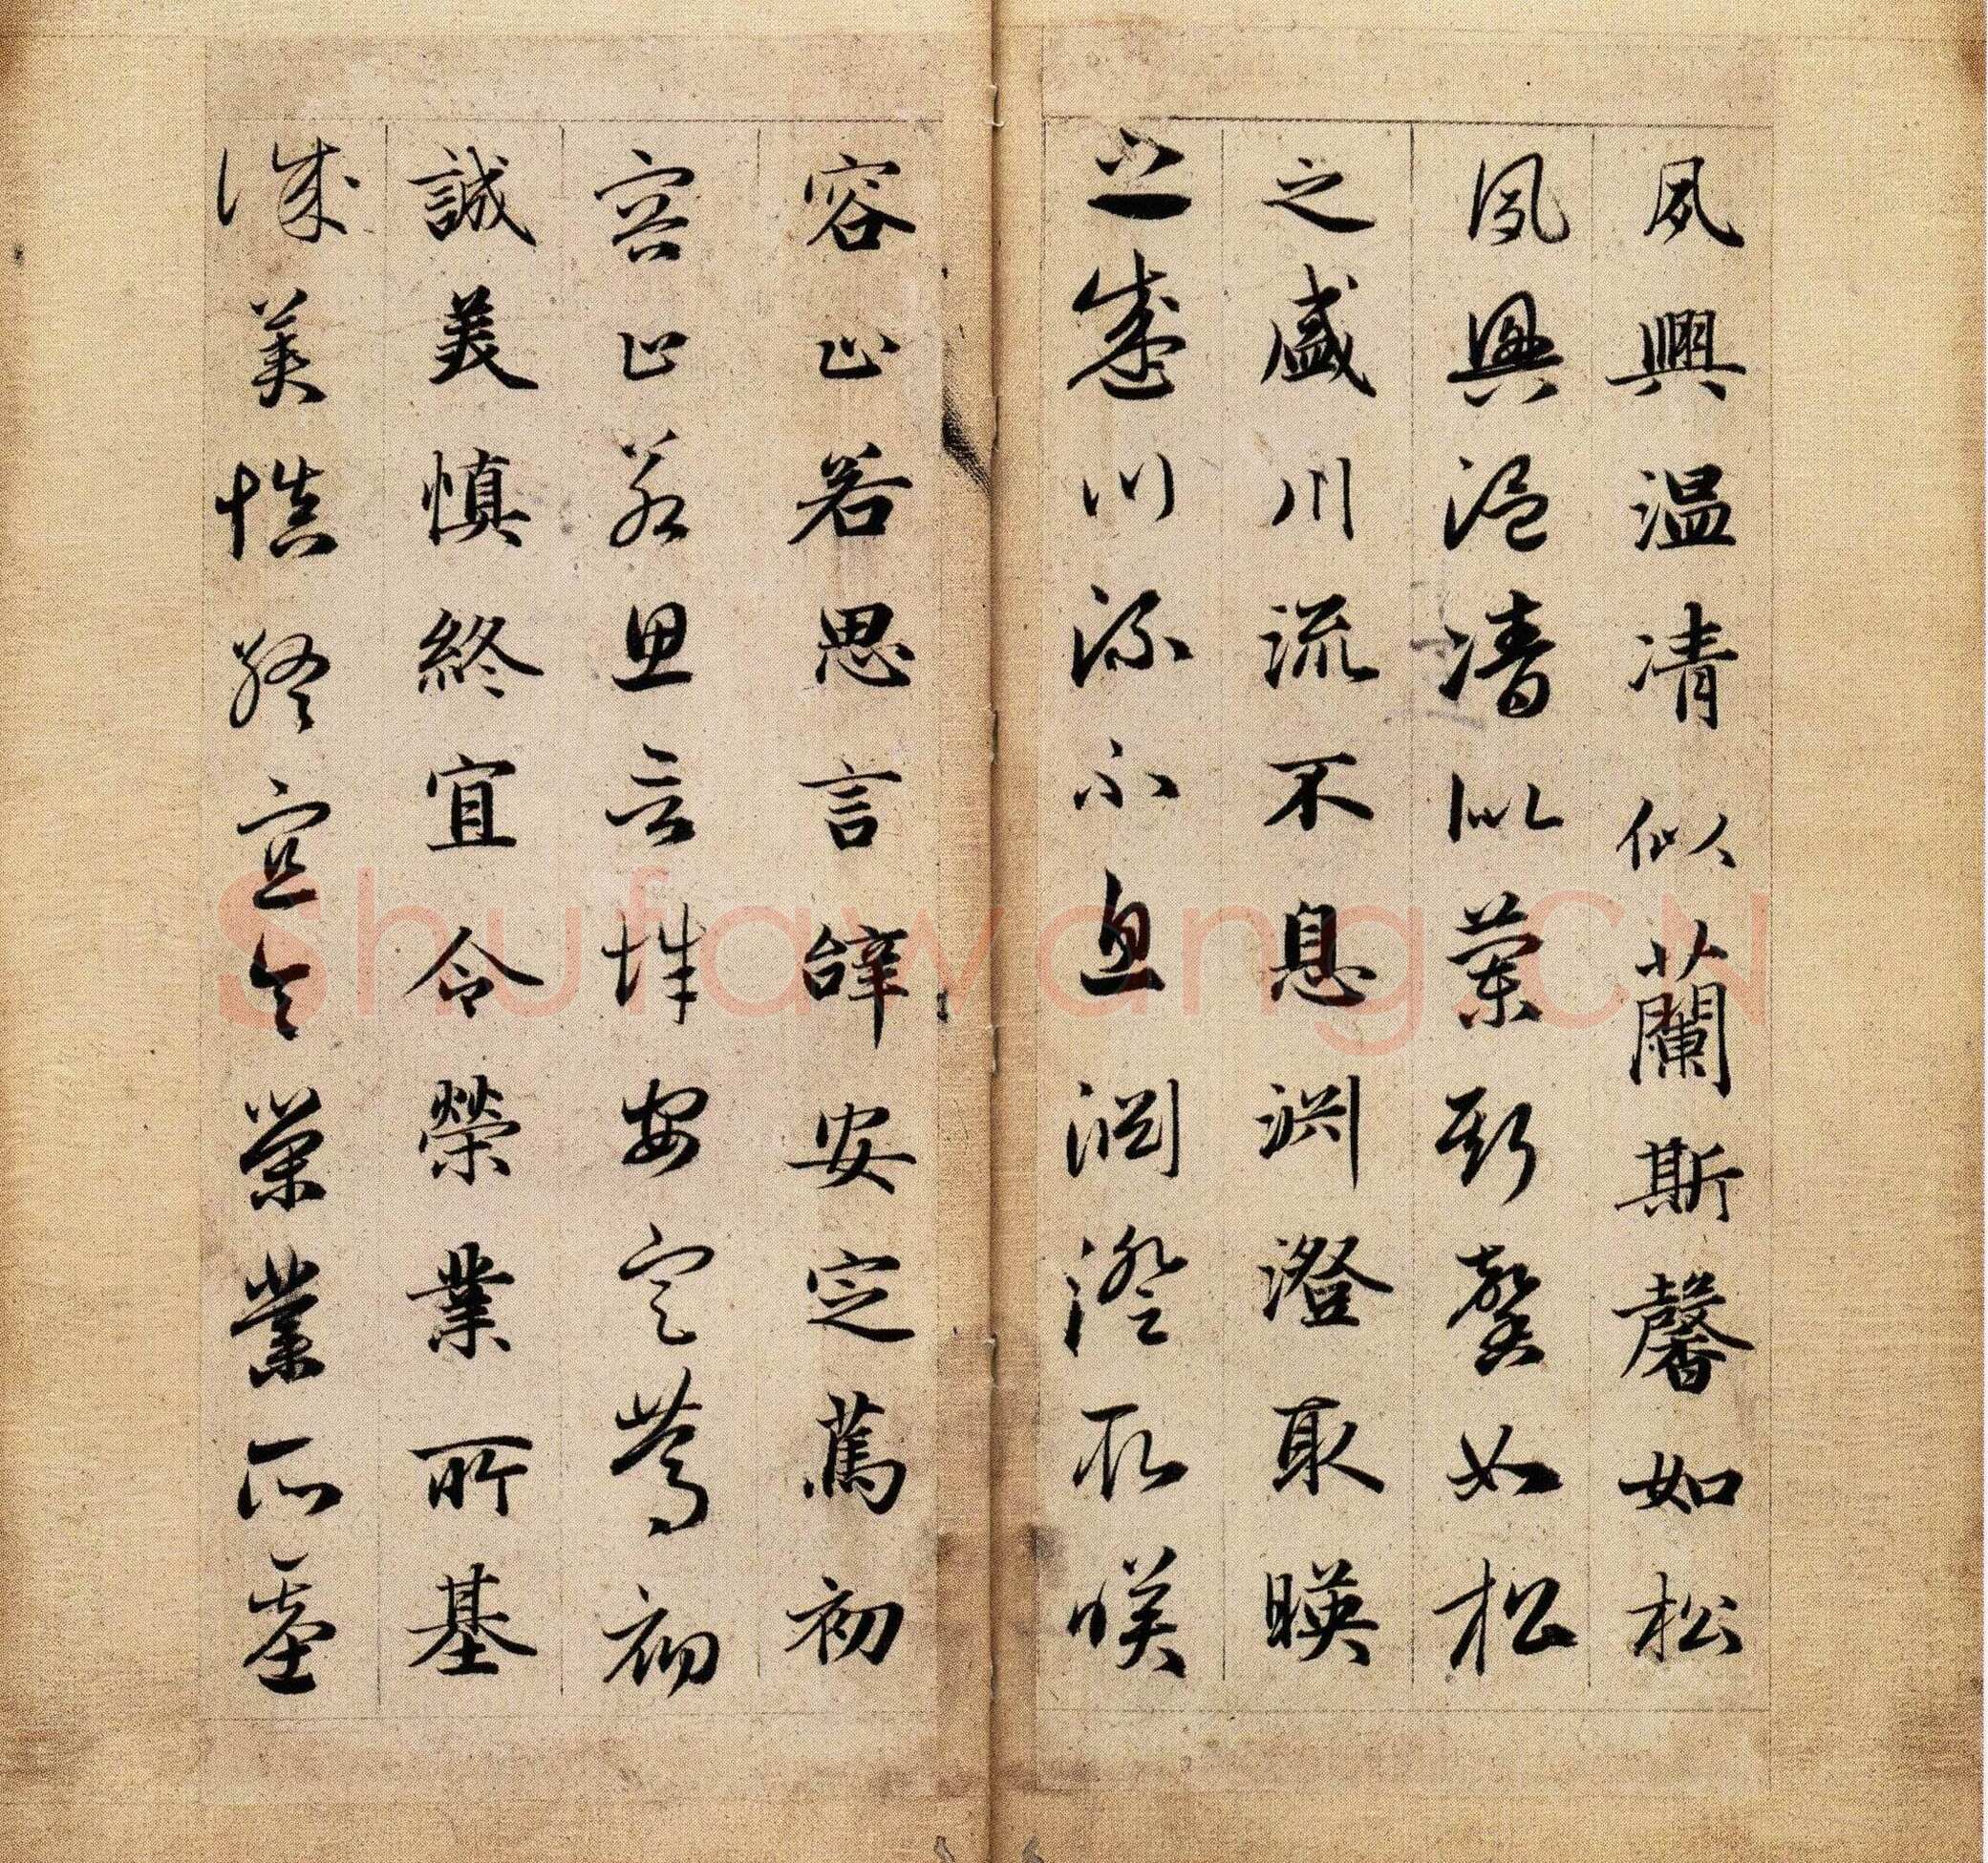 夙興温凊似蘭斯馨如松
夙興温凊似蘭斯馨如松
之盛川流不息渊澄取暎
之盛川流不息淵澄取暎
容止若思言辞安定篤初
容止若思言辞安定篤初
誠美慎終宜令榮業所基
誠美慎終宜令榮業所基
Shufawang.CN